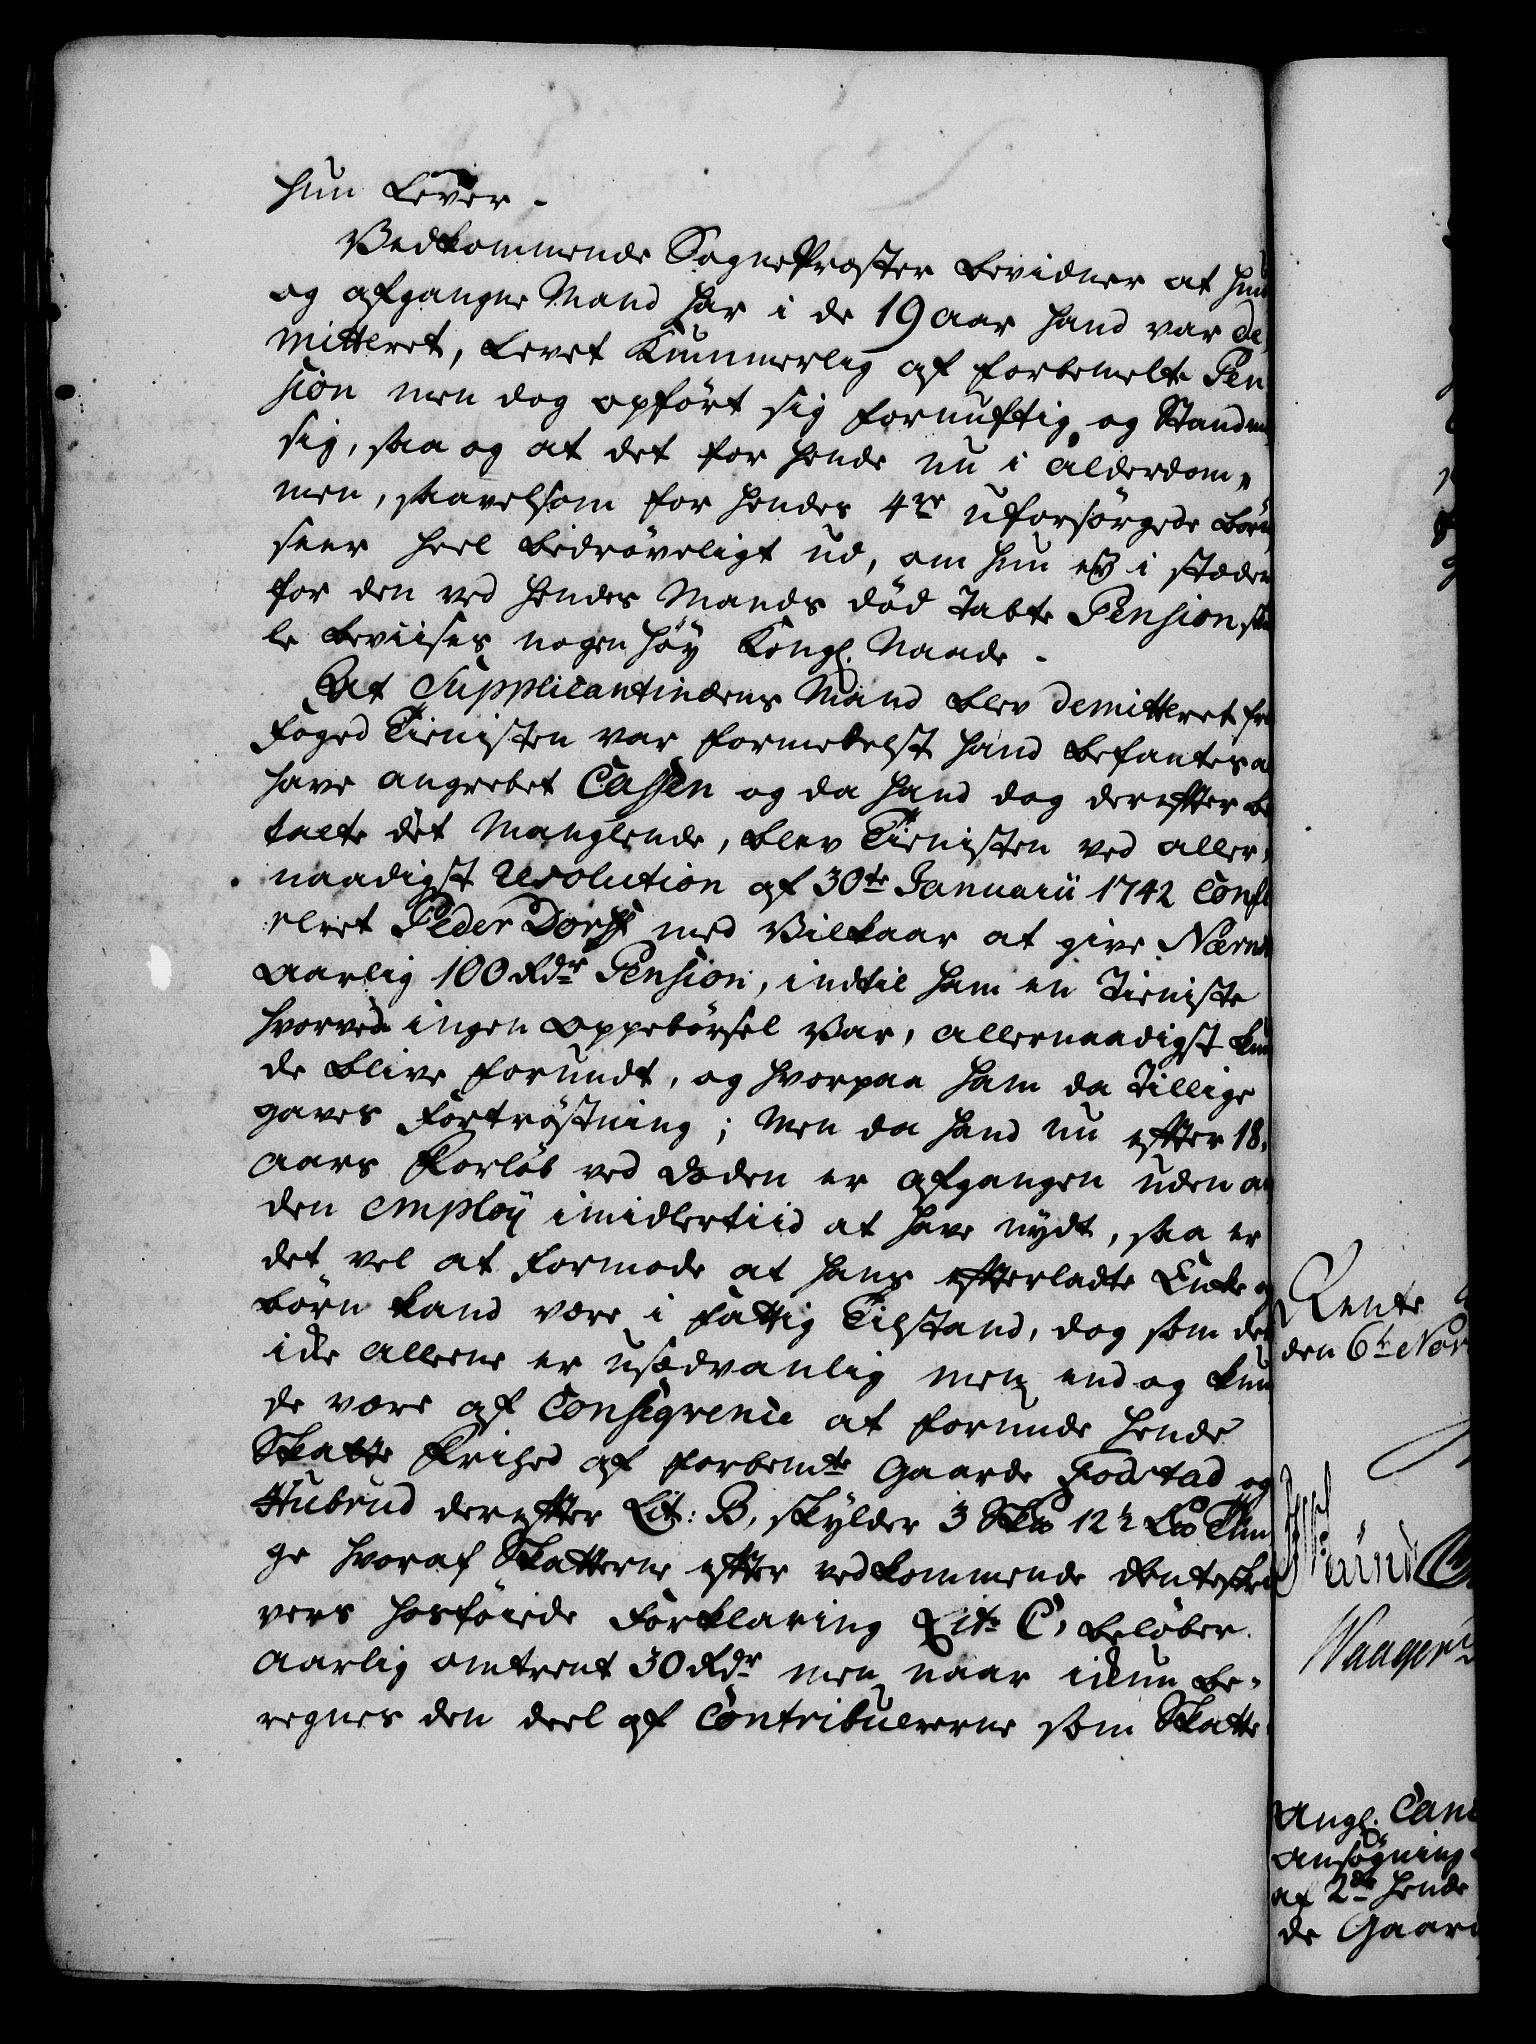 hun Lever.
Vedkommende Sogne Præster bevidner at hun
og afgangne Mand har i de 19 aar hand var de,
mitteret, levet Kummerlig af forbemelte Pen
sion men dog opført sig fornuftig og Standmæ
sig, saa og at det for hende nu i alderdom,
men, saavelsom for hendes 4re uforsørgede børn
seer heel bedrøveligt ud, om hun ey i stæden
for den ved hendes Mands død tabte Pension skul
le beviises nogen høy Kongl. Naade.
At Supplicantindens Mand blev demitteret fra
Foged Tienisten var formedelst hand befantes a
have angrebet Cassen og da hand dog derefter be
talte det Manglende, blev Tienisten ved aller,
naadigst Resolution af 30te Januarii 1742 Conf
eret Peder Dorph med Vilkaar at give Nærm
aarlig 100 Rdr Pension, indtil ham en Tieniste
hvorved ingen oppebørsel var, allernaadigst kun
de blive forundt, og hvorpaa ham da tillige
gaves Fortrøstning; Men da hand nu efter 18,
aars Forløb ved døden er afgangen uden an
den employ imidlertiid at have nydt, saa er
det vel at formode at hans efterladte Enke og
børn kand være i fattig Tilstand, dog som det
icke allene er usædvanlig men end og kun
de være af Conseqvence at forunde hende
Skatte Frihed af forbemte Gaarde Fodstad og
Hubrud derefter Lit: B, skylder 3 Skp 12½ Lp Tun
ge hvoraf Skatterne efter vedkommende Renteskri
vers hosføiede Forklaring Lit. C, beløber
aarlig omtrent 30 Rdr men naar ickun be-
regnes den deel af Contribuererne som Skatte
Rente
den 6te Nov
Waager
Angl. Can
ansøgning
af 2de hende
de Gaar